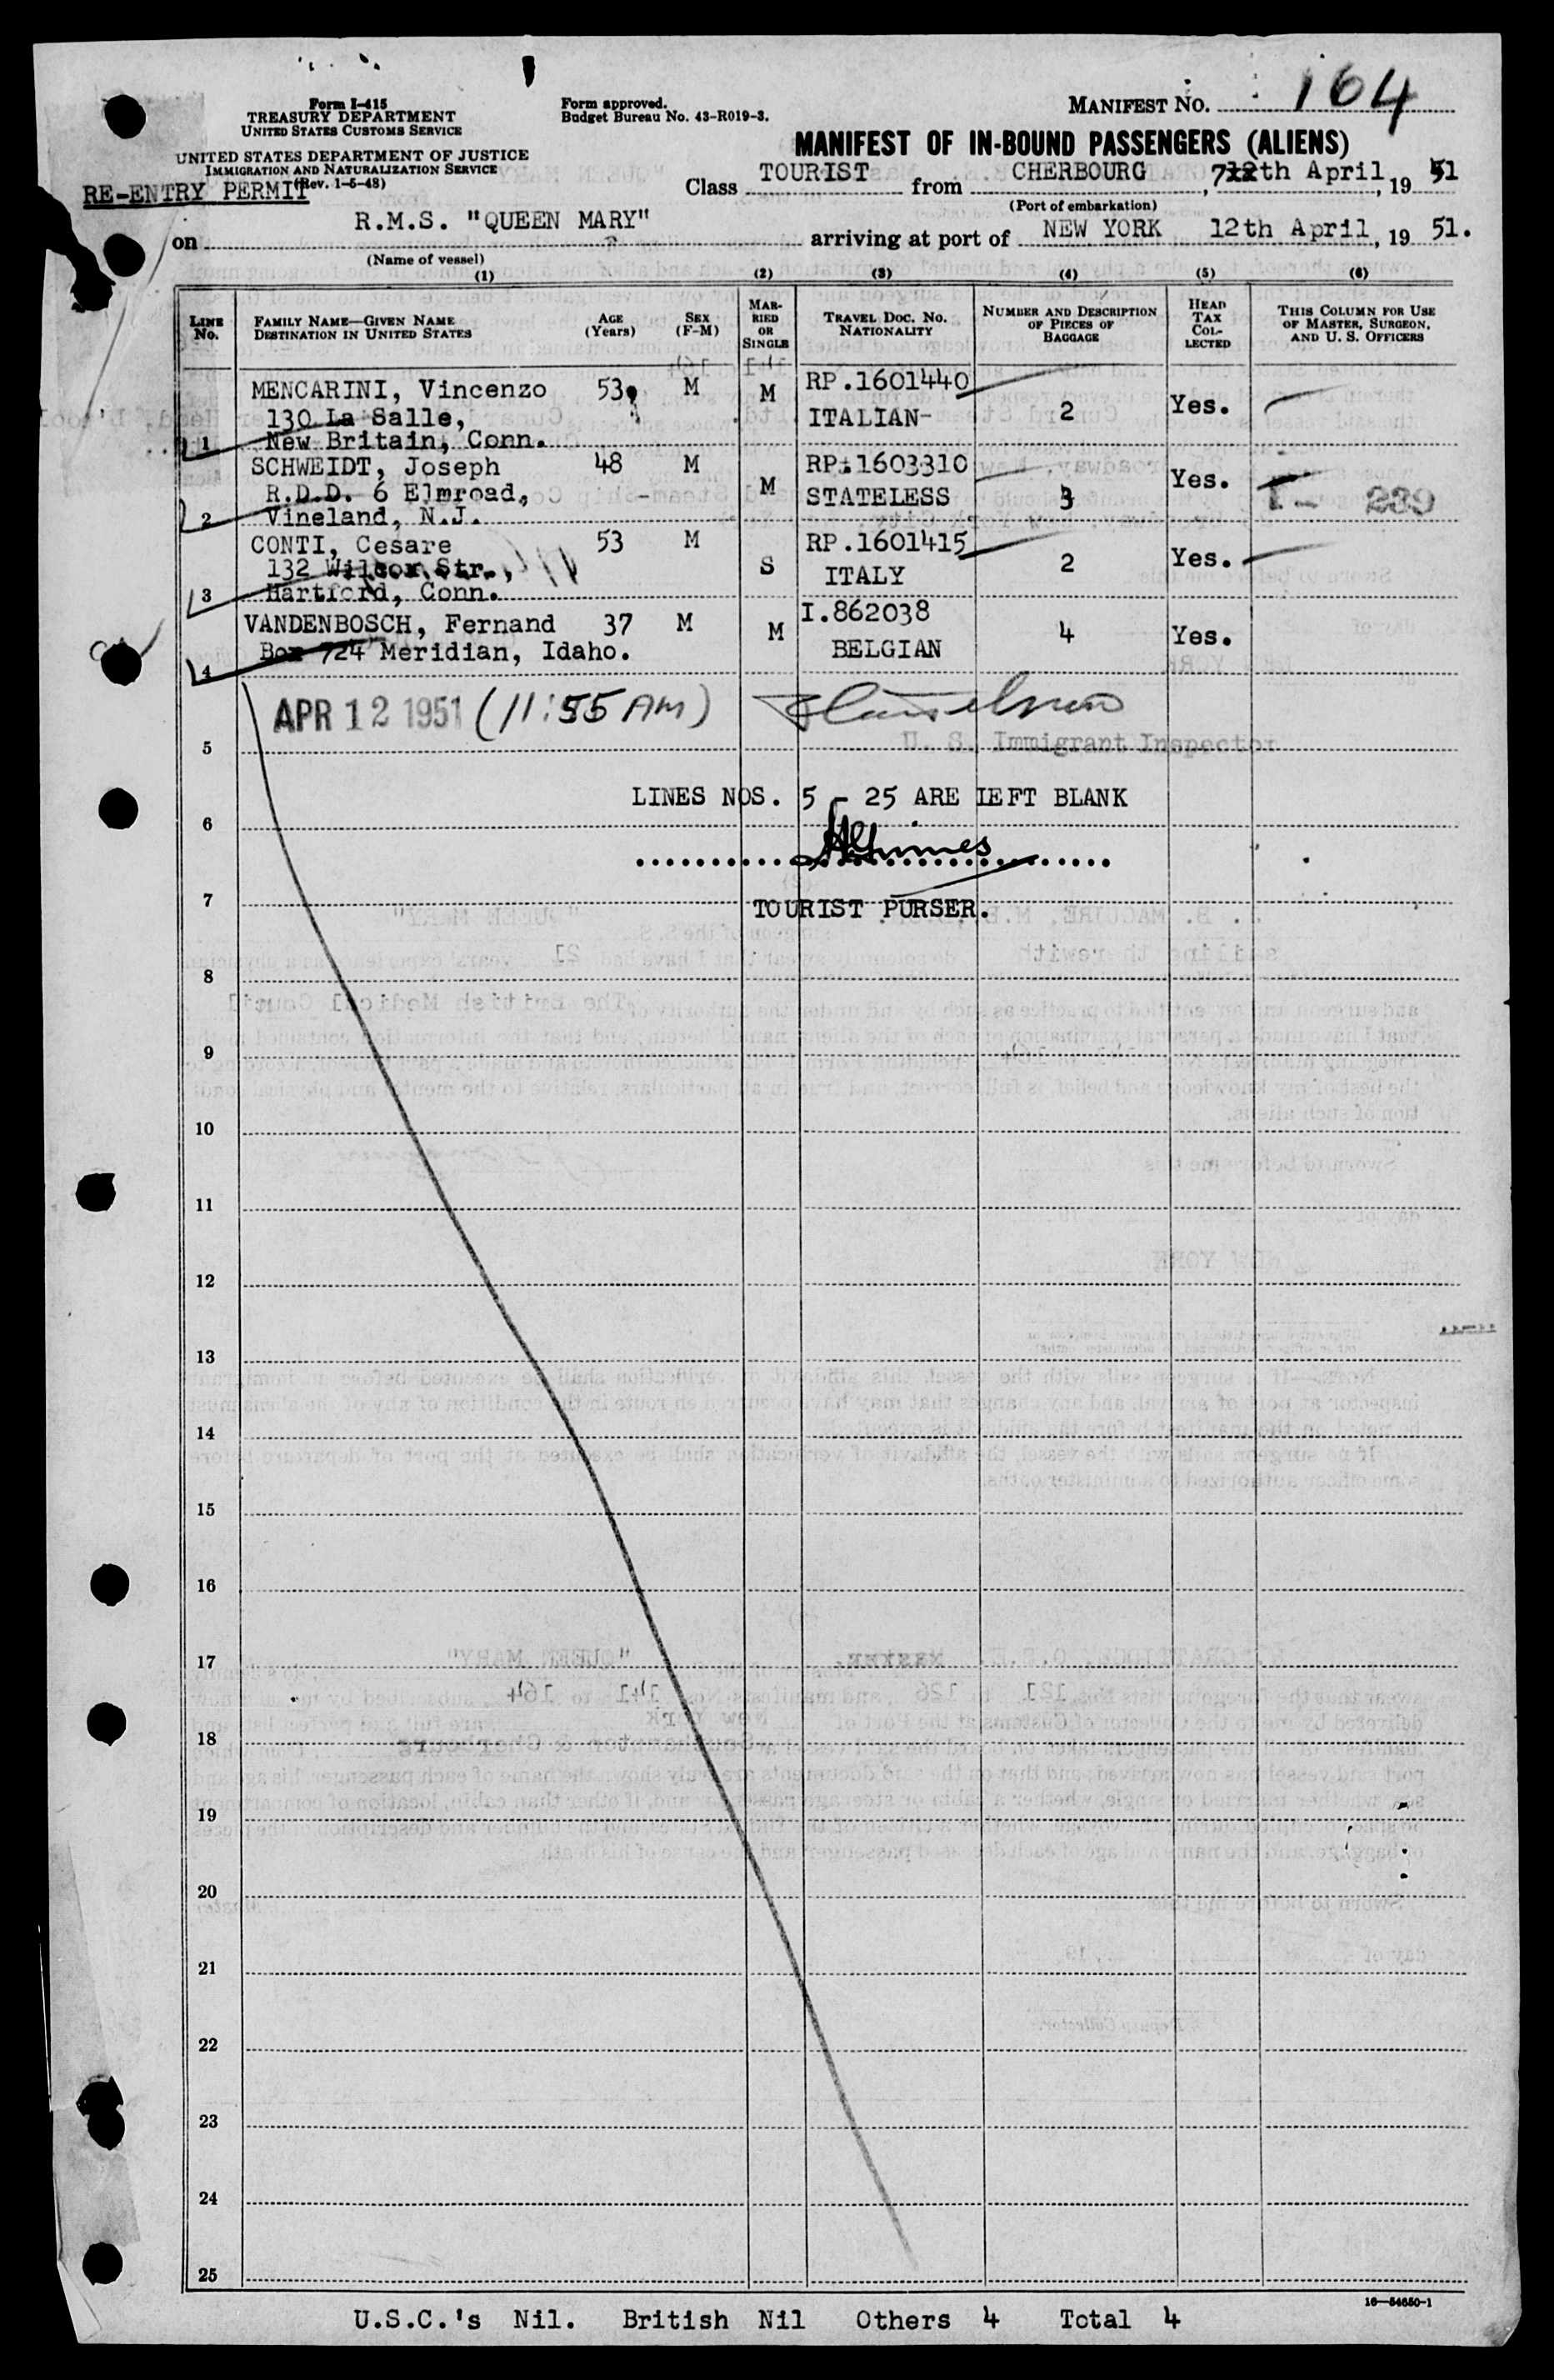 Form I-415
TREASURY DEPARTMENT
UNITED STATES CUSTOMS SERVICE
UNITED STATES DEPARTMENT OF JUSTICE
IMMIGRATION AND NATURALIZATION SERVICE
(Rev. 1-5-48)
RE-ENTRY PERMIT
Form approved.
Budget Bureau No. 43-R019-3.
MANIFEST NO. 164
MANIFEST OF IN-BOUND PASSENGERS (ALIENS)
Class TOURIST from CHERBOURG, 7th April, 19 51
(Port of embarkation)
on R.M.S. "QUEEN MARY" arriving at port of NEW YORK 12th April, 19 51.
(Name of vessel)
(1) (2) (3) (4) (5) (6)
LINE No. FAMILY NAME—GIVEN NAME DESTINATION IN UNITED STATES AGE (Years) SEX (F-M) MARRIED OR SINGLE TRAVEL DOC. NO. NATIONALITY NUMBER AND DESCRIPTION OF PIECES OF BAGGAGE HEAD TAX COLLECTED THIS COLUMN FOR USE OF MASTER, SURGEON, AND U. S. OFFICERS
MENCARINI, Vincenzo 53 M M RP.1601440 2 Yes.
130 La Salle, ITALIAN-
1 New Britain, Conn.
SCHWEIDT, Joseph 48 M M RP.1603310 3 Yes.
R.D.D. 6 Elmroad, STATELESS I- 239
2 Vineland, N.J.
CONTI, Cesare 53 M S RP.1601415 2 Yes.
132 Wilcox Str., ITALY
3 Hartford, Conn.
VANDENBOSCH, Fernand 37 M M I.862038 4 Yes.
Box 724 Meridian, Idaho. BELGIAN
4
APR 12 1951 (11:55 AM)
U. S. Immigrant Inspector
5
LINES NOS. 5 - 25 ARE LEFT BLANK
6
AGrimes
7
TOURIST PURSER.
8
9
10
11
12
13
14
15
16
17
18
19
20
21
22
23
24
25
16—54650-1
U.S.C.'s Nil. British Nil Others 4 Total 4